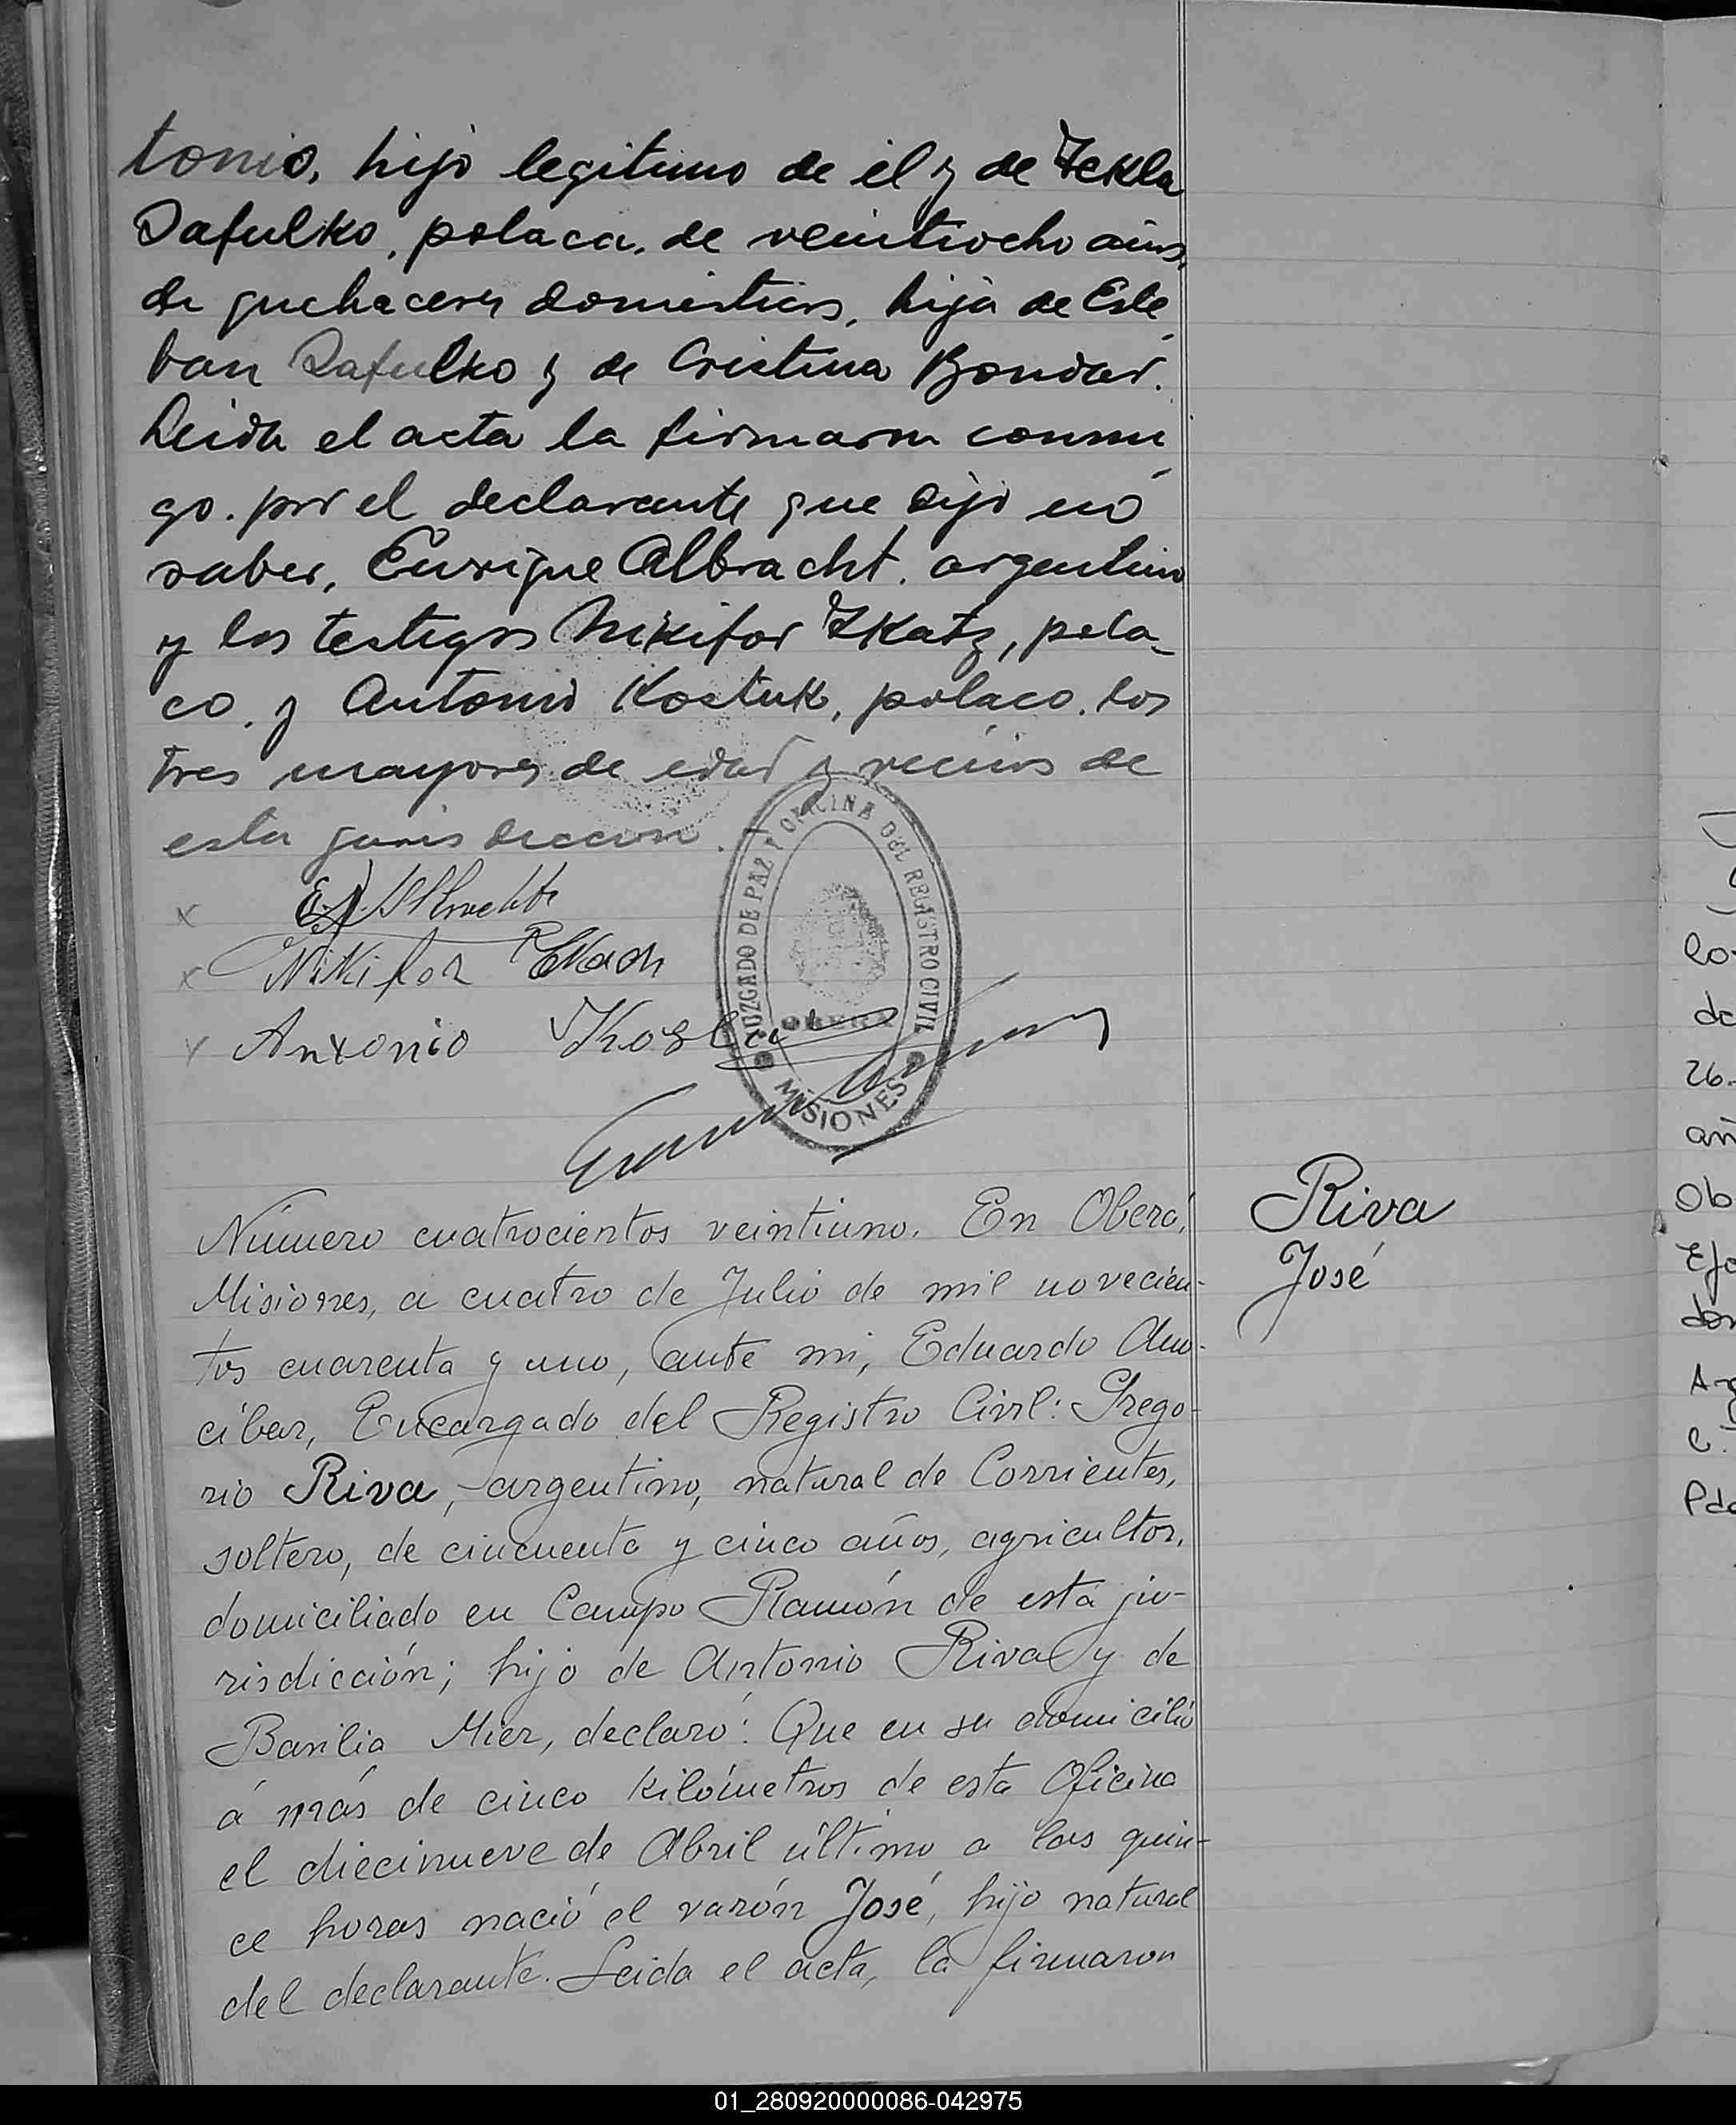 tonio, hijo legitimo de él y de Tekla
Dafulko, polaca, de veintiocho años,
de quehaceres domésticos, hija de Este
ban Dafulko y de Cristina Bondar.
Leida el acta la firmaron conmi
go. por el declarante que dijo nó
saber, Enrique Albracht, argentino
y los testigos Nikifor Tkatz, pola-
co, y Antonio Kostuk, polaco, los
tres mayores de edad y vecinos de
esta jurisdiccion.
JUZGADO DE PAZ Y OFICINA DEL REGISTRO CIVIL
OBERA
MISIONES
Nikifor
Antonio
Número cuatrocientos veintiuno. En Oberá,
Misiones, a cuatro de Julio de mil novecien-
tos cuarenta y uno, ante mi, Eduardo Amo-
cibar, Encargado del Registro Civil: Grego-
rio Riva, argentino, natural de Corrientes,
soltero, de cincuenta y cinco años, agricultor,
domiciliado en Campo Ramón de esta ju-
risdicción; hijo de Antonio Riva y de
Basilia Mier, declaró: Que en su domicilio
á más de cinco kilómetros de esta Oficina
el diecinueve de Abril último a las quin-
ce horas nació el varón José, hijo natural
del declarante. Leida el acta, la firmaron
Riva
José
lo
de
26.
añ
Ob
Efe
dom
Ar
01_280920000086-042975